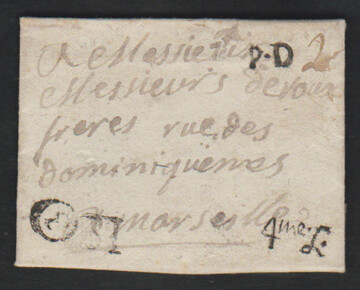 A Messieurs P.D 2
Messieurs deroux
freres rue des
dominiquennes
51 a marseille
4me L.